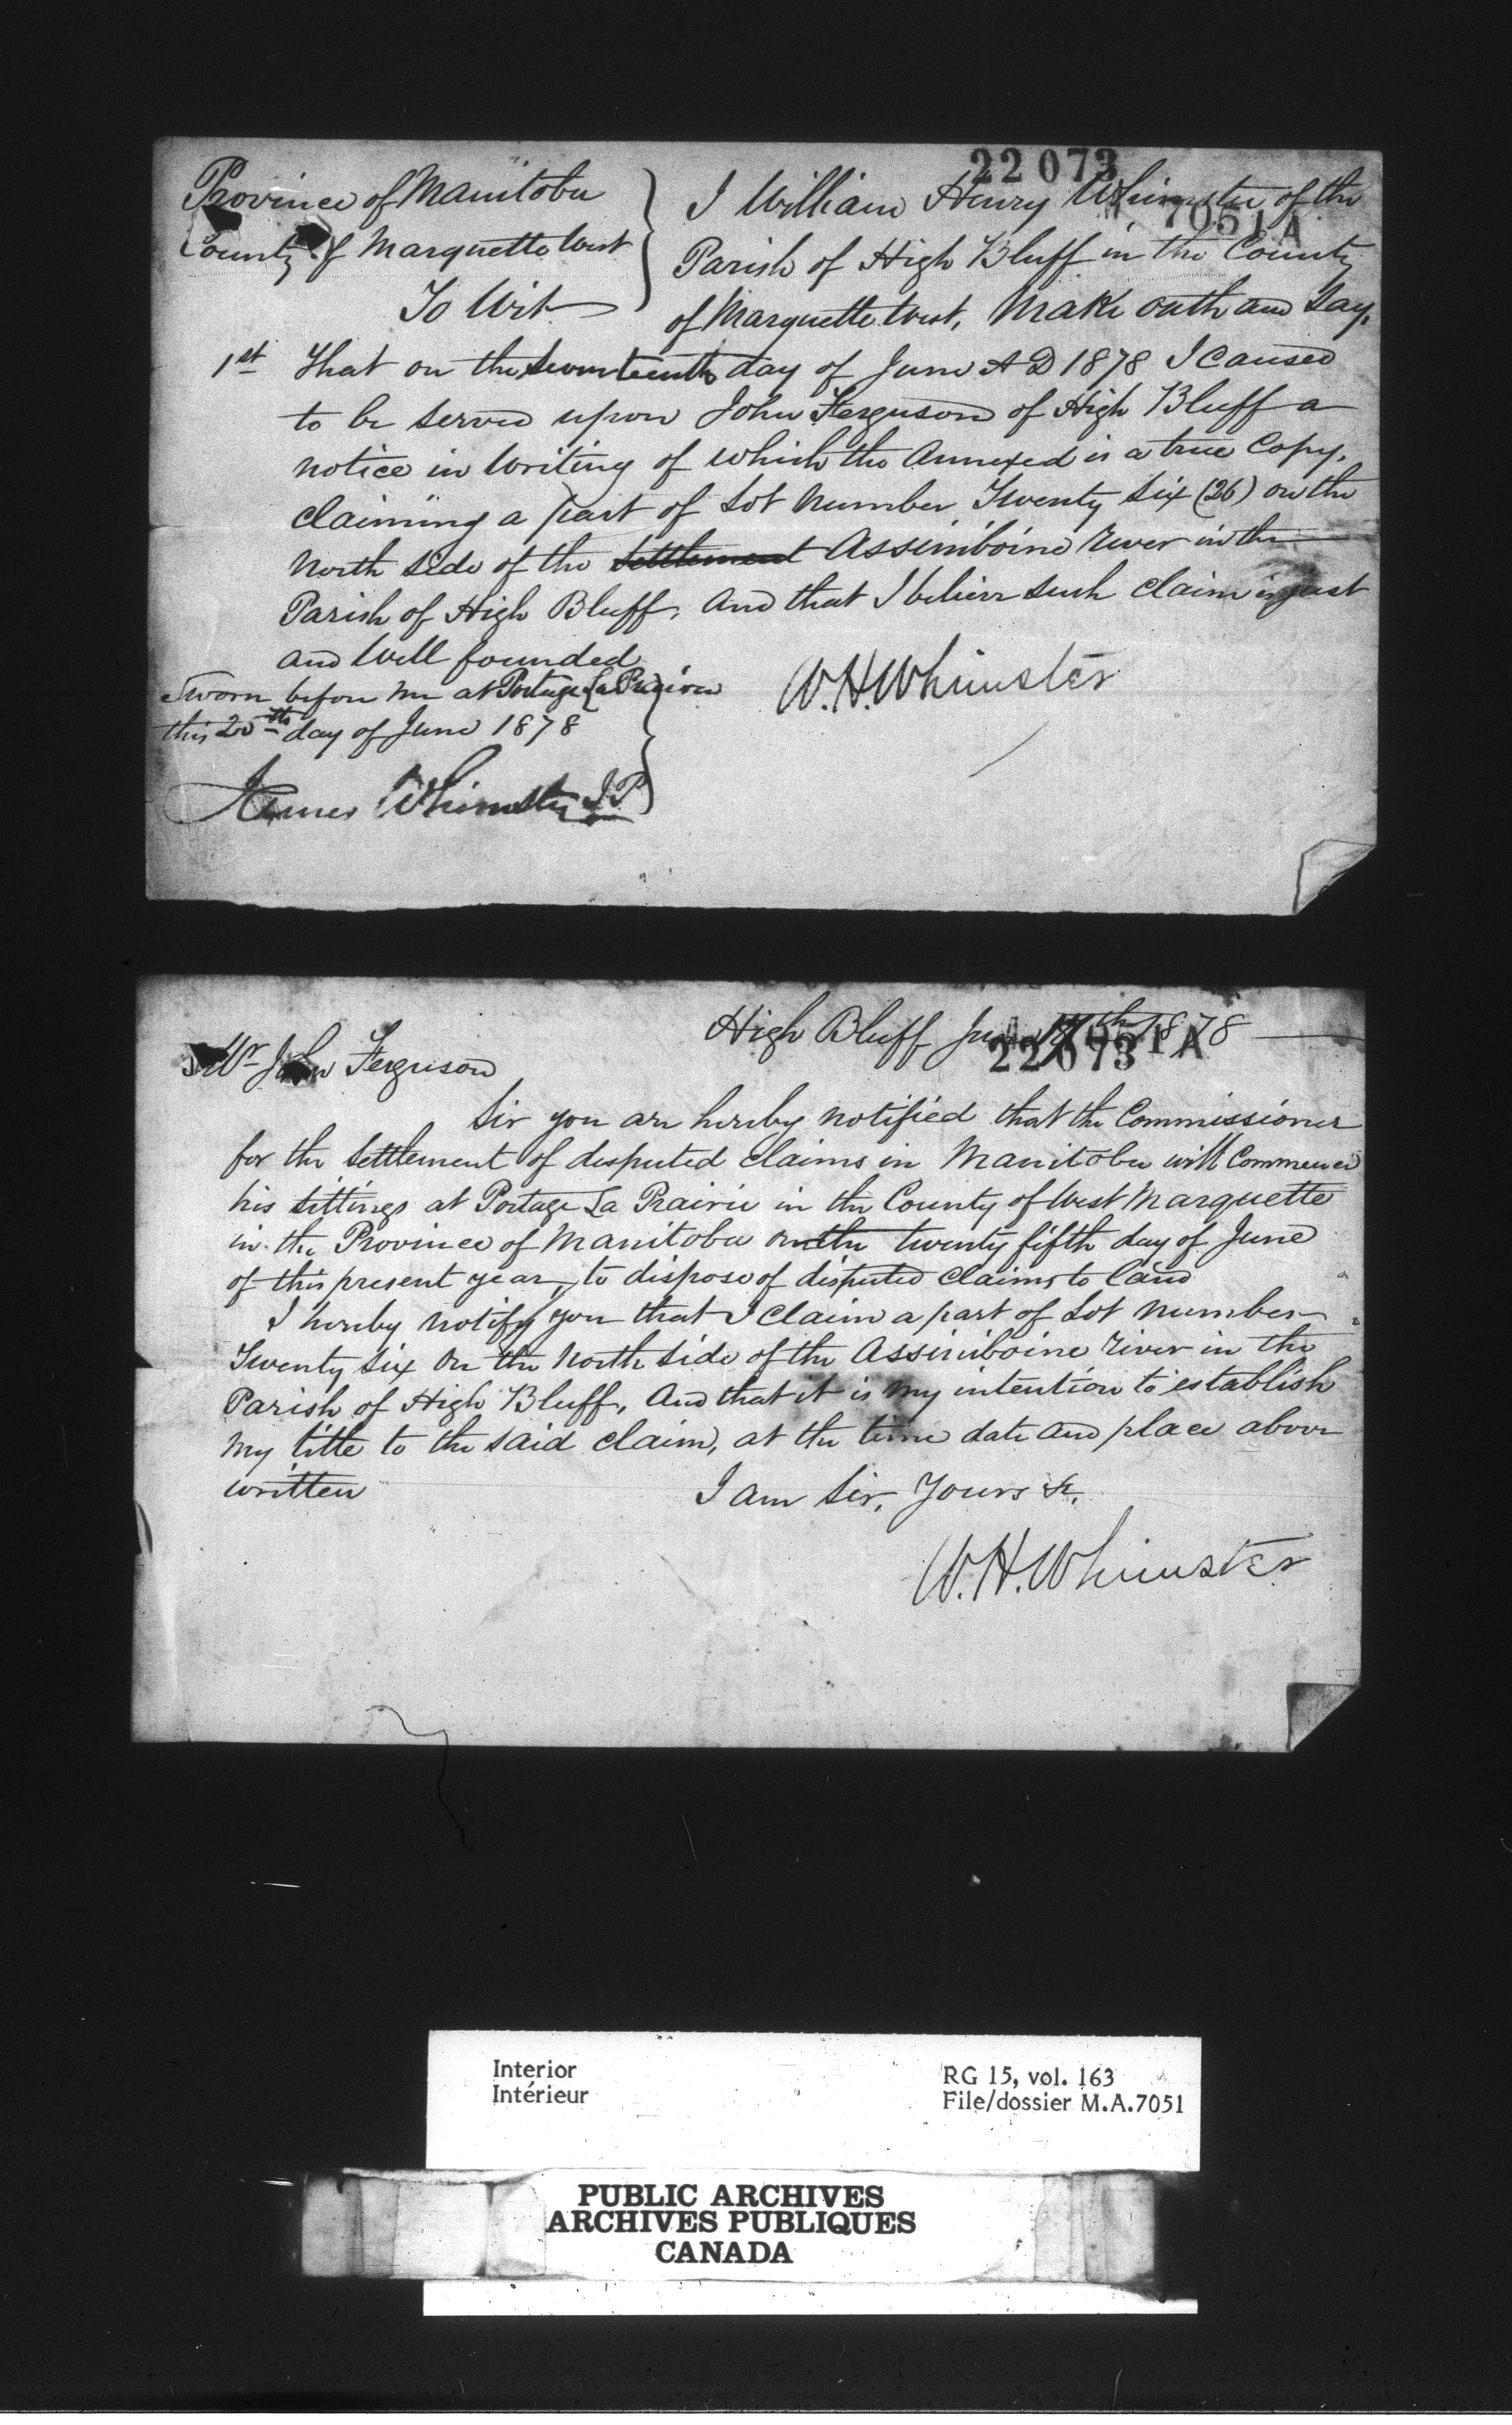 22073
7051A
Province of Manitoba
County of Marquette West
To Wit
I William Henry Whimster of the
Parish of High Bluff in the County
of Marquette West, Make oath and Say,
1st That on the Seventeenth day of June A D 1878 I caused
to be served upon John Ferguson of High Bluff a
notice in Writing of which the Annexed is a true Copy.
Claiming a part of Lot Number Twenty Six (26) on the
North Side of the Settlement Assiniboine River in the
Parish of High Bluff, And that I believe such claim is just
and Well founded
Sworn before me at Portage La Prairie
this 20th day of June 1878
W.H.Whimster
James Whimster J.P
High Bluff June 17th 1878
7051A
22073
Mr John Ferguson
Sir you are hereby notified that the Commissioner
for the Settlement of disputed Claims in Manitoba will Commence
his sittings at Portage La Prairie in the County of West Marquette
in the Province of Manitoba on the twenty fifth day of June
of this present year, to dispose of disputed claims to land
I hereby notify you that I Claim a part of Lot Number
Twenty Six On the North Side of the Assiniboine River in the
Parish of High Bluff, And that it is my intention to establish
My title to the said claim, at the time date and place above
written
I am Sir, Yours &c,
W.H.Whimster
Interior
Intérieur
RG 15, vol. 163
File/dossier M.A.7051
PUBLIC ARCHIVES
ARCHIVES PUBLIQUES
CANADA